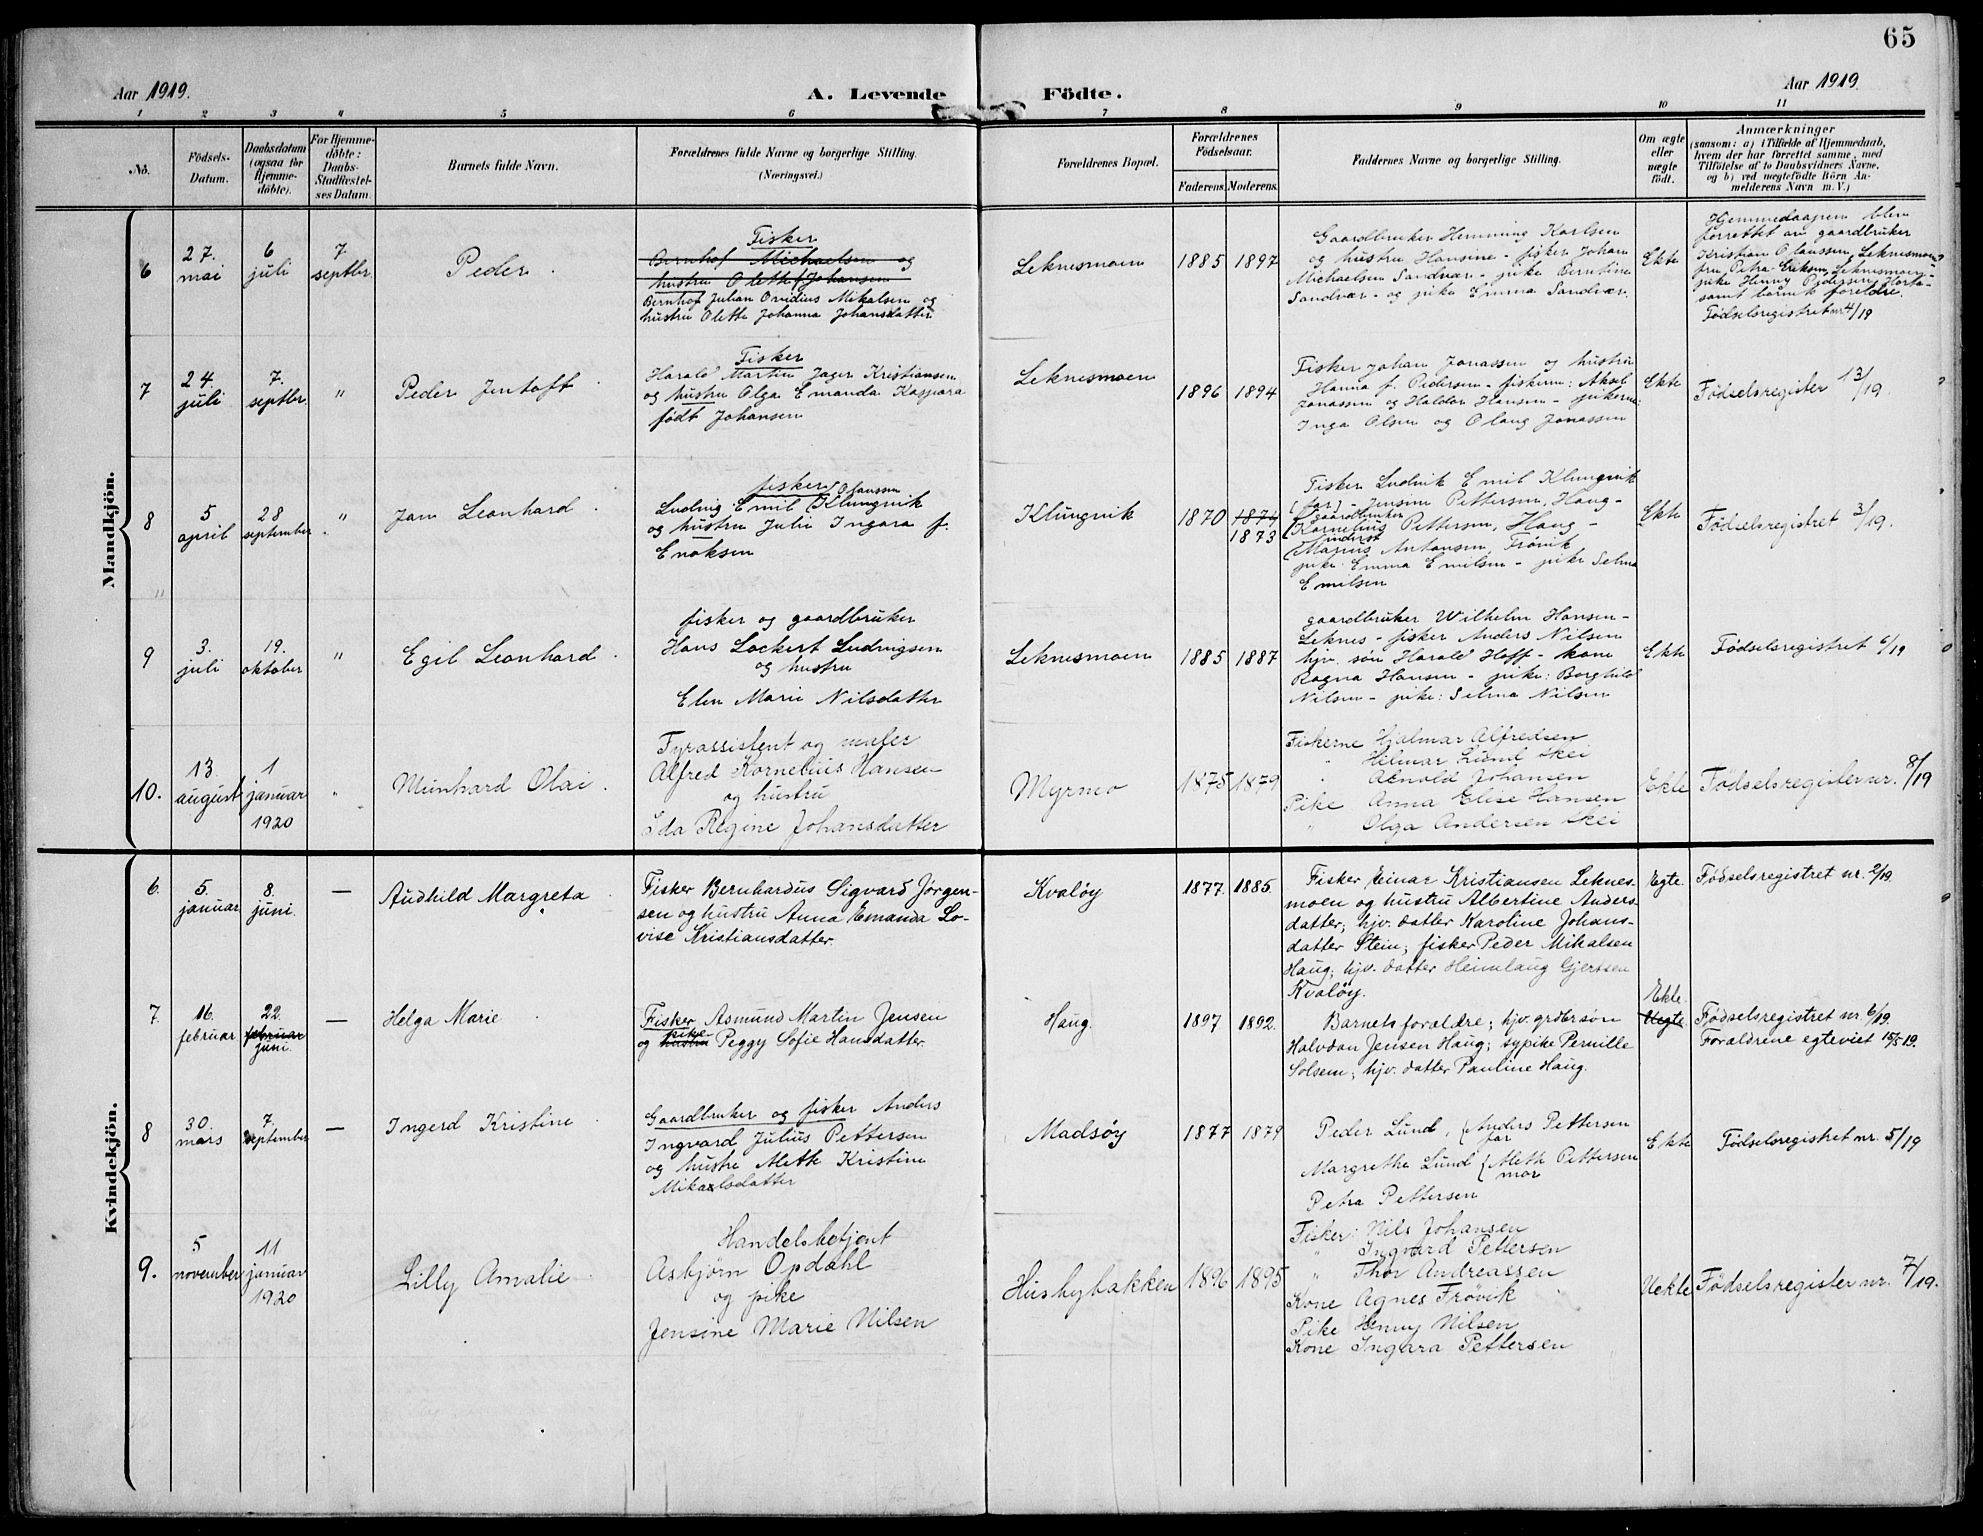 65
Aar 1919.
A. Levende Födte.
Aar 1919.
1 2 3 4 5 6 7 8 9 10 11
No.
Födsels-
Datum.
Daabsdatum
(ogsaa for
Hjemme-
döbte).
For Hjemme-
döbte:
Daabs-
Stadfæstel-
ses Datum.
Barnets fulde Navn.
Forældrenes fulde Navne og borgerlige Stilling.
(Næringsvei.)
Forældrenes Bopæl.
Forældrenes
Födselsaar.
Faderens. Moderens.
Faddernes Navne og borgerlige Stilling.
Om ægte
eller
uægte
födt.
Anmærkninger
(saasom: a) i Tilfælde af Hjemmedaab,
hvem der har forrettet samme, med
Tilföielse af to Daabsvidners Navne,
og b) ved uægtefödte Börn An-
melderens Navn m. V.)
Mandkjön.
6
27.
mai
6
juli
7.
septbr.
Peder
Fisker
Bernhof Michaelsen og
hustru Olette f. Johansen
Bernhof Julian Ovidius Mikalsen og
hustru Olette Johanna Johansdatter
Leknesmoen
1885 1897
Gaardbruker Hemming Karlsen
og hustru Hansine - fisker Johan
Michaelsen Sandvær - pike Berntine
Sandvær - og pike Emma Sandvær.
Ekte
Hjemmedaapen blev
forrettet av gaardbruker
Kristian Olaussen, Leknesmoen
fru Petra Eriksen, Leknesmoen,
pike Henny Pedersen
samt barnets foreldre.
Fødselsregistret nr 4/19
7
24.
juli
7.
septbr.
"
Peder Jentoft
Fisker
Harald Martin Jager Kristiansen
og hustru Olga Emanda Kaspara
født Johansen
Leknesmoen
1896 1894
Fisker Johan Jonassen og hustru
Hanna f. Pedersen - fiskerne: Aksel
Jonassen og Haldor Hansen - pikerne:
Inga Olsen og Olaug Jonassen
Ekte
Fødselsregister 13/19.
8
5
april
28
september
"
Jan Leonhard
fisker
Olaussen
Ludvig Emil Klungvik
og hustru Julie Ingara f.
Enoksen
Klungvik
1870 1874
1873
Fisker Ludvik Emil Klungvik
(far) - Jensine Pettersen, Haug -
gaardbruker
Kornelius Pettersen, Haug -
Marius Antonsen, Frøvik
pike Emma Emilsen - pike Selma
Emilsen
Ekte
Fødselsregistret 3/19.
9
3.
juli
19.
oktober
"
Egil Leonhard
fisker og gaardbruker
Hans Lockert Ludvigsen
og hustru
Elen Marie Nilsdatter
Leknesmoen
1885 1887
gaardbruker Wilhelm Hansen -
Leknes - fisker Anders Nilsen
hjv. søn Harald Hoff - kone
Ragna Hansen - pike: Borghild
Nilsen - pike: Selma Nilsen
Ekte
Fødselsregistret 6/19
10.
13
august
1
januar
1920
"
Meinhard Olai
Fyrassistent og maler
Alfred Kornelius Hansen
og hustru
Ida Regine Johansdatter
Myrmo
1875 1879
Fiskerne Hjalmar Alfredsen
" Hilmar Lund Skei
" Arnold Johansen
Pike Anna Elise Hansen
" Olga Andersen Skei
Ekte
Fødselsregister nr. 8/19
Kvindekjön.
6.
5.
januar
8.
juni.
—
Audhild Margreta
Fisker Bernhardus Sigvard Jörgen-
sen og hustru Anna Emanda Lo-
vise Kristiansdatter.
Kvaløy
1877. 1885.
Fisker Einar Kristiansen Leknes-
moen og hustru Albertine Anders-
datter; hjv. datter Karoline Johans-
datter Stein; fisker Peder Mikalsen
Haug; hjv. datter Heimlaug Gjertsen
Kvaløy.
Egte.
Fødselsregistret nr. 2/19
7.
16.
februar
22.
februar
juni.
—
Helga Marie
Fisker Asmund Martin Jensen
pike
og hustru Peggy Sofie Hansdatter.
Haug.
1897 1892.
Barnets forældre; hjv. grdbrsøn
Halvdan Jensen Haug; sypike Pernille
Solsem; hjv. datter Pauline Haug.
Ekte.
Uegte.
Fødselsregistret nr. 6/19.
Forældrene egteviet 15/5 19.
8
30.
mars
7.
september
—
Ingerd Kristine
Gaardbruker og fisker Anders
Ingvard Julius Pettersen
og hustru Aleth Kristine
Mikalsdatter
Madsøy
1877 1879
Peder Lund, (Anders Pettersen
far
Margrethe Lund (Aleth Pettersen
mor
Petra Pettersen
Ekte
Fødselsregistret nr. 5/19
9.
5
november
11
januar
1920
Lilly Amalie
Handelsbetjent
Asbjørn Opdahl
og pike
Jensine Marie Nilsen
Husbybakken
1896 1895
Fisker: Nils Johansen
" Ingvard Pettersen
" Thor Andreassen
Kone Agnes Frøvik
Pike Henny Nilsen
Kone Ingara Pettersen
Uekte
Fødselsregister nr. 7/19.